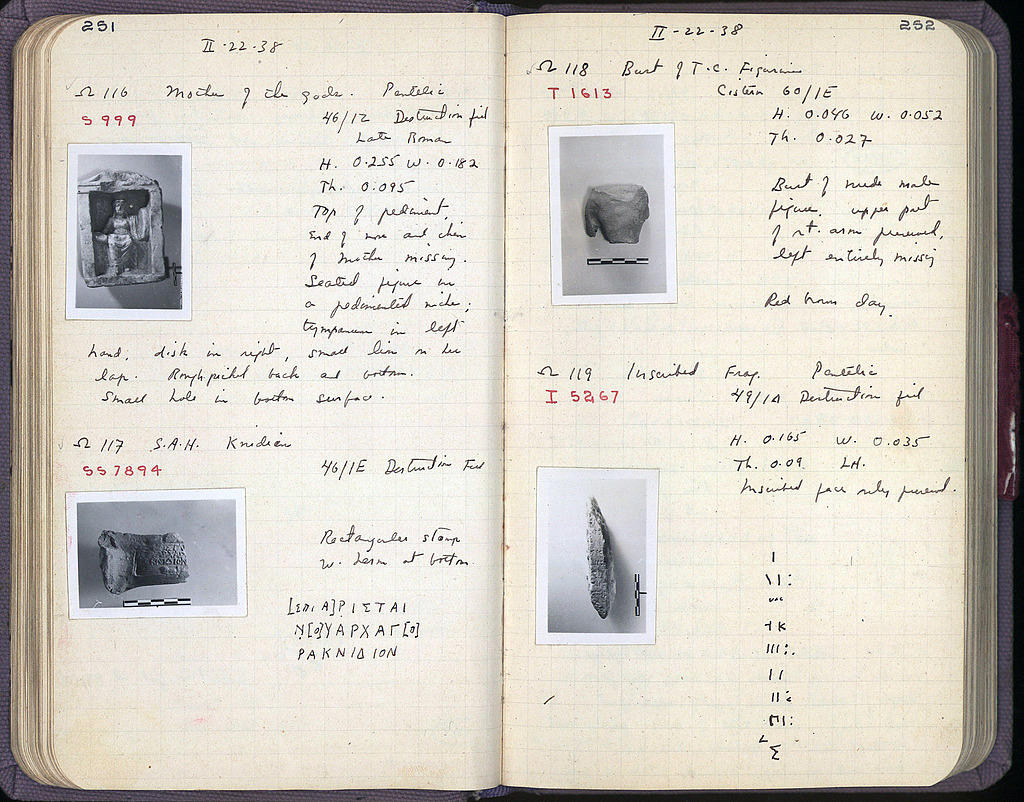 251
II-22-38
Ω 116 Mother of the gods. Pentelic
S 999
46/ΙΖ Destruction fill
Late Roman
H. 0.255 W. 0.182
Th. 0.095
Top of pediment,
end of nose and chin
of Mother missing.
Seated figure in
a pedimented niche;
tympanum in left
hand; disk in right, small lion on her
lap. Rough picked back and bottom.
Small hole in bottom surface.
Ω 117 S.A.H. Knidian
SS 7894
46/ΙΕ Destruction Fill
Rectangular stamp
w. herm at bottom.
[ΕΠΙ Α]ΡΙΣΤΑΙ
Ν[Ο]ΥΑΡΧΑΓ[Ο]
ΡΑΚΝΙΔΙΟΝ
252
II-22-38
Ω 118 Bust of T.C. Figurine
T 1613
Cistern 60/ΙΕ
H. 0.046 W. 0.052
Th. 0.027
Bust of nude male
figure. upper part
of rt. arm preserved,
left entirely missing
Red brown clay.
Ω 119 Inscribed Frag. Pentelic
I 5267
49/ΙΔ Destruction fill
H. 0.165 W. 0.035
Th. 0.09 LH.
Inscribed face only preserved.